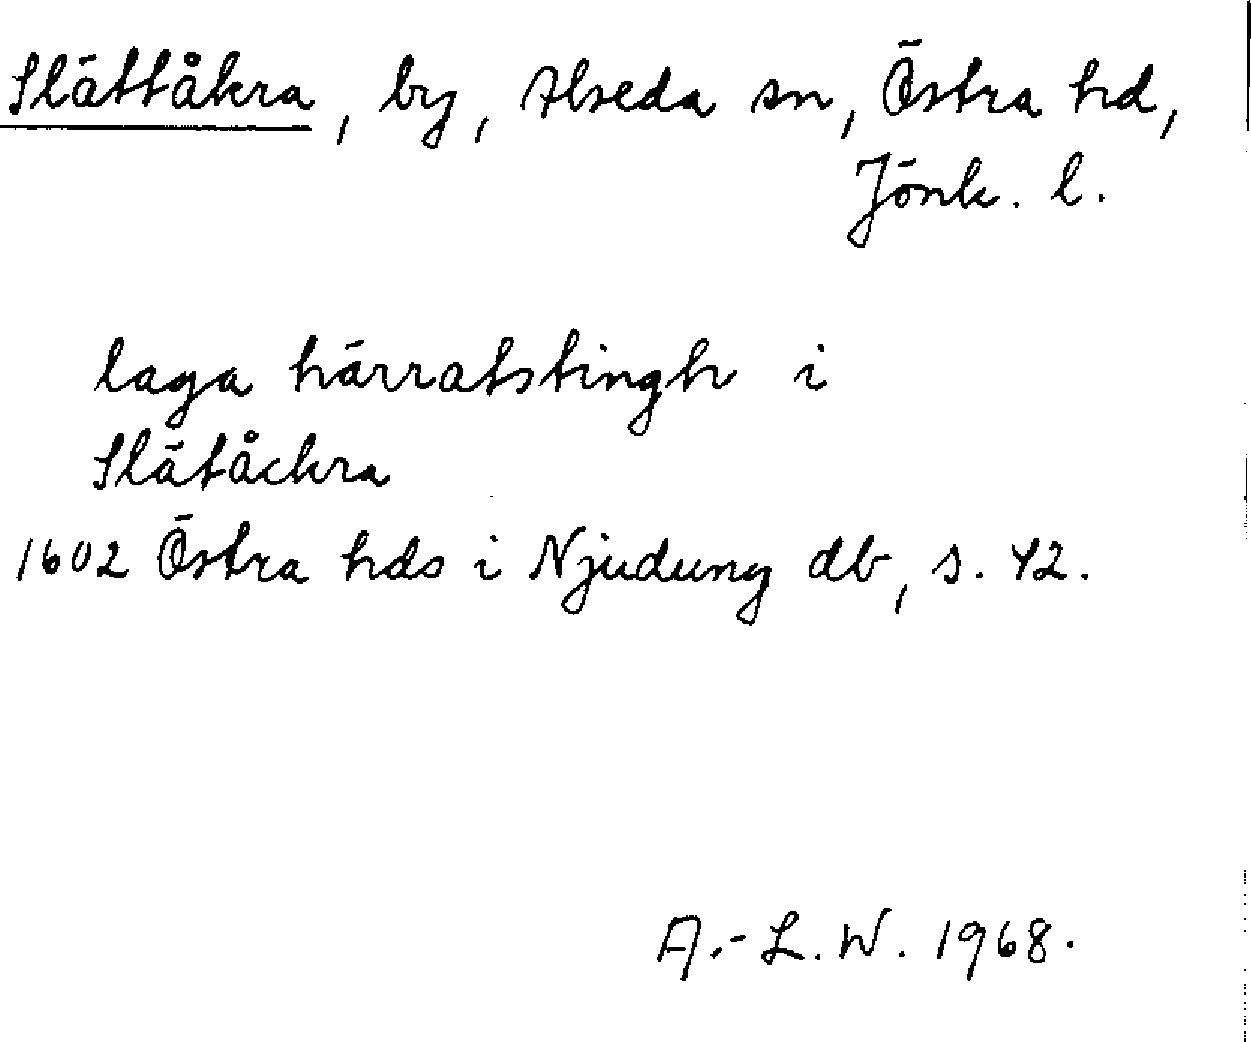 Slättåkra, by, Alseda sn, Östra hd,
Jönk. l.
laga härratstingh i
Slätåckra
1602 Östra hds i Njudung db, s. 42.
A.-L. W. 1968.